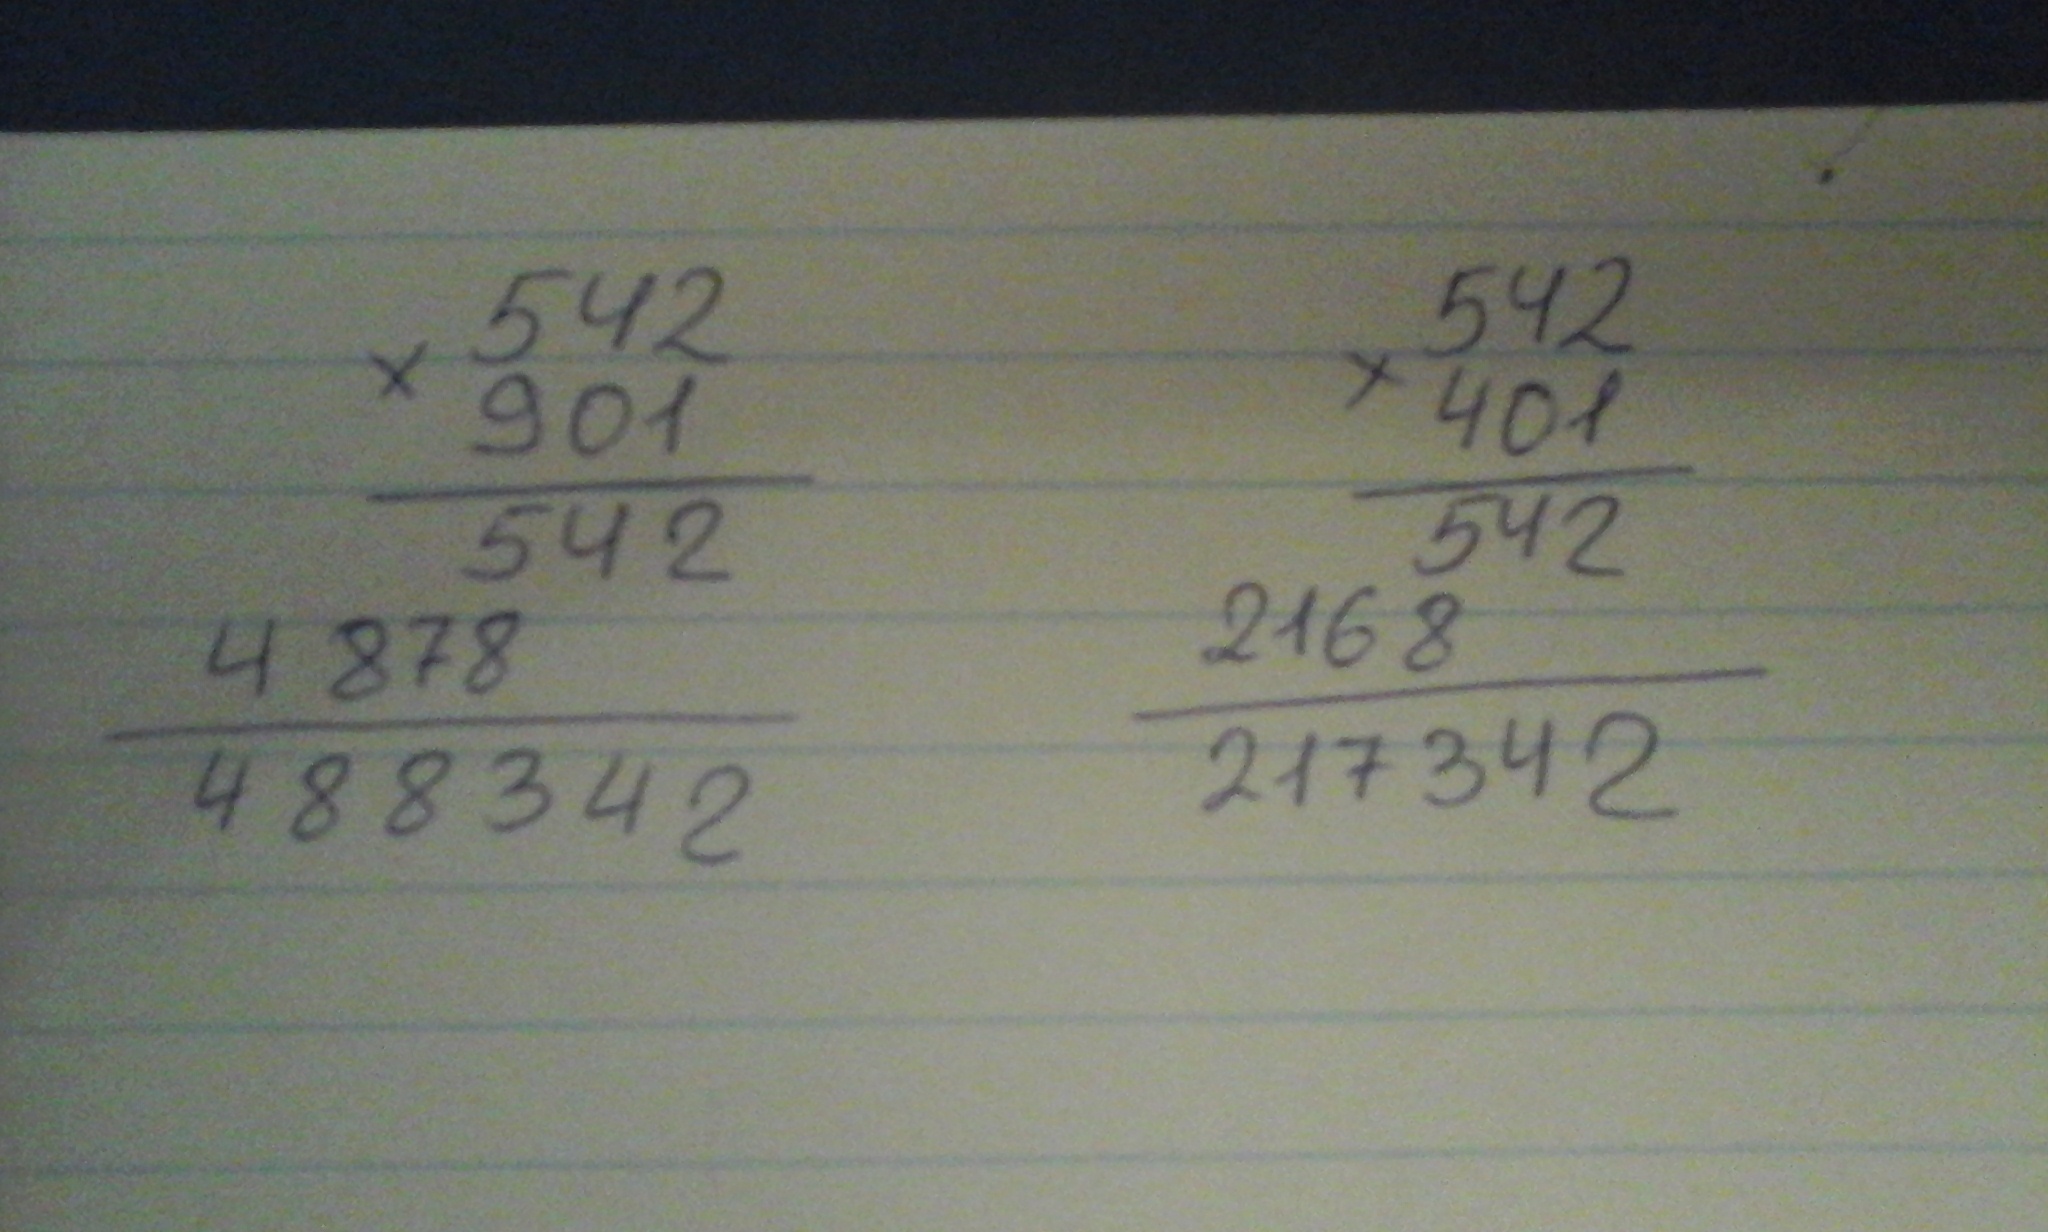 542
× 901
542
4878
488342
542
× 401
542
2168
217342